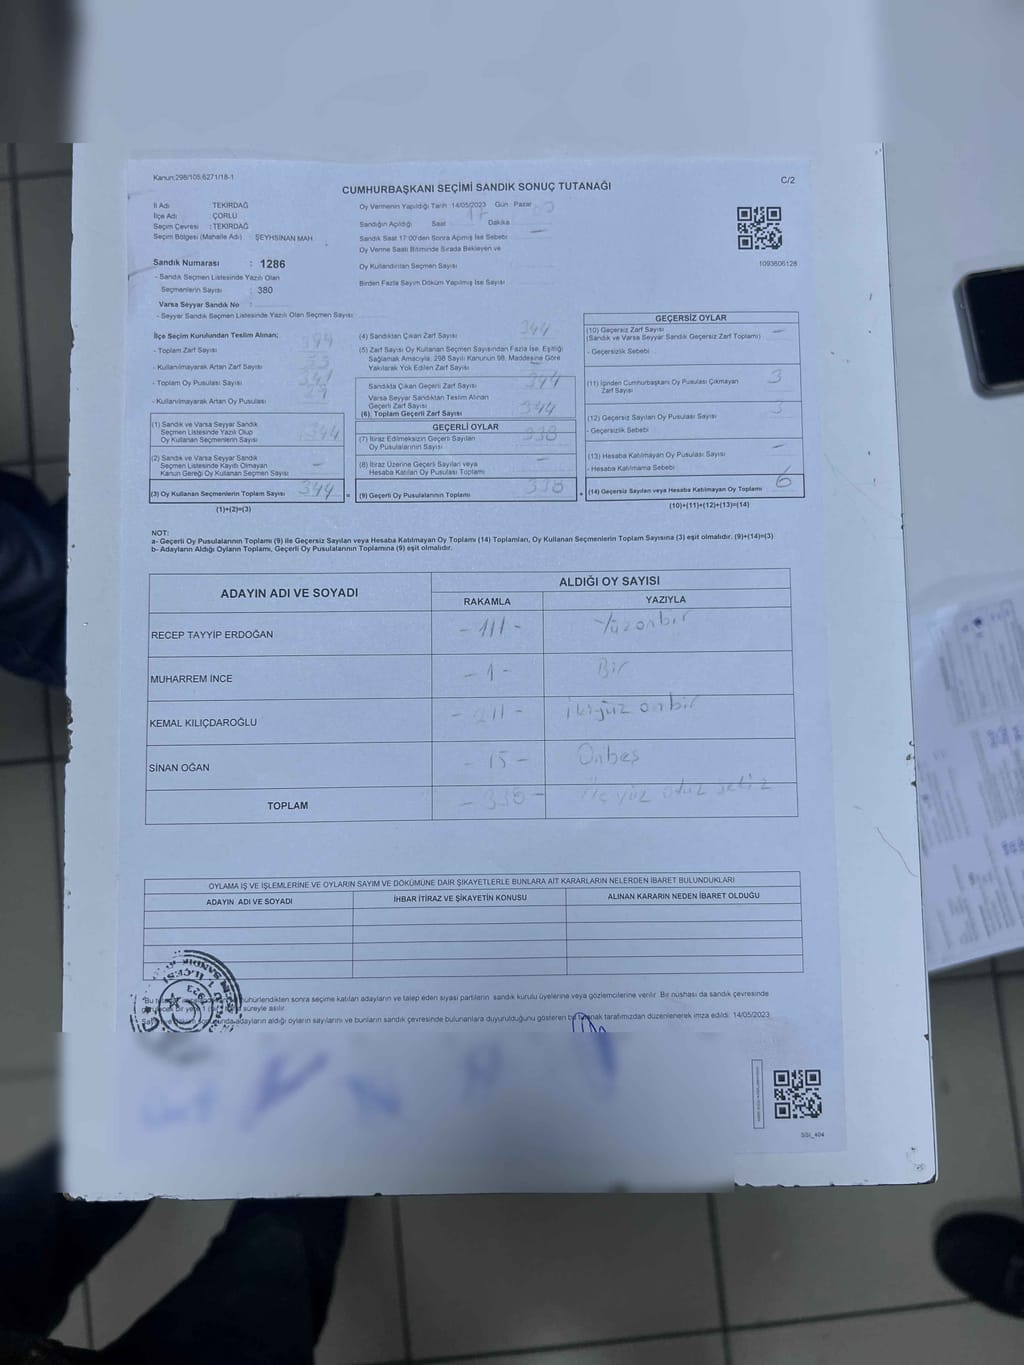 Kanun;298/105,6271/18-1
C/2
CUMHURBAŞKANI SEÇİMİ SANDIK SONUÇ TUTANAĞI
İl Adı TEKİRDAĞ
İlçe Adı ÇORLU
Seçim Çevresi : TEKİRDAĞ
Seçim Bölgesi (Mahalle Adı) : ŞEYHSİNAN MAH
Oy Vermenin Yapıldığı Tarih :14/05/2023 Gün : Pazar
Sandığın Açıldığı Saat 17 Dakika
Sandık Saat 17:00'den Sonra Açılmış İse Sebebi
Oy Verme Saati Bitiminde Sırada Bekleyen ve
Oy Kullandırılan Seçmen Sayısı
Birden Fazla Sayım Döküm Yapılmış İse Sayısı
1093606128
Sandık Numarası : 1286
- Sandık Seçmen Listesinde Yazılı Olan
Seçmenlerin Sayısı : 380
Varsa Seyyar Sandık No :
- Seyyar Sandık Seçmen Listesinde Yazılı Olan Seçmen Sayısı:
İlçe Seçim Kurulundan Teslim Alınan;
- Toplam Zarf Sayısı
- Kullanılmayarak Artan Zarf Sayısı
- Toplam Oy Pusulası Sayısı
- Kullanılmayarak Artan Oy Pusulası
(1) Sandık ve Varsa Seyyar Sandık
Seçmen Listesinde Yazılı Olup
Oy Kullanan Seçmenlerin Sayısı 344
(2) Sandık ve Varsa Seyyar Sandık
Seçmen Listesinde Kayıtlı Olmayan
Kanun Gereği Oy Kullanan Seçmen Sayısı –
(3) Oy Kullanan Seçmenlerin Toplam Sayısı 344
(1)+(2)=(3)
(4) Sandıktan Çıkan Zarf Sayısı 344
(5) Zarf Sayısı Oy Kullanan Seçmen Sayısından Fazla İse, Eşitliği
Sağlamak Amacıyla, 298 Sayılı Kanunun 98. Maddesine Göre
Yakılarak Yok Edilen Zarf Sayısı –
Sandıkta Çıkan Geçerli Zarf Sayısı 344
Varsa Seyyar Sandıktan Teslim Alınan
Geçerli Zarf Sayısı
(6). Toplam Geçerli Zarf Sayısı 344
GEÇERLİ OYLAR
(7) İtiraz Edilmeksizin Geçerli Sayılan
Oy Pusulalarının Sayısı 338
(8) İtiraz Üzerine Geçerli Sayılan veya
Hesaba Katılan Oy Pusulası Toplamı –
= (9) Geçerli Oy Pusulalarının Toplamı 338
GEÇERSİZ OYLAR
(10) Geçersiz Zarf Sayısı –
(Sandık ve Varsa Seyyar Sandık Geçersiz Zarf Toplamı)
- Geçersizlik Sebebi
(11) İçinden Cumhurbaşkanı Oy Pusulası Çıkmayan
Zarf Sayısı 3
(12) Geçersiz Sayılan Oy Pusulası Sayısı 3
- Geçersizlik Sebebi
(13) Hesaba Katılmayan Oy Pusulası Sayısı –
- Hesaba Katılmama Sebebi
+ (14) Geçersiz Sayılan veya Hesaba Katılmayan Oy Toplamı 6
(10)+(11)+(12)+(13)=(14)
NOT:
a- Geçerli Oy Pusulalarının Toplamı (9) ile Geçersiz Sayılan veya Hesaba Katılmayan Oy Toplamı (14) Toplamları, Oy Kullanan Seçmenlerin Toplam Sayısına (3) eşit olmalıdır. (9)+(14)=(3)
b- Adayların Aldığı Oyların Toplamı, Geçerli Oy Pusulalarının Toplamına (9) eşit olmalıdır.
ADAYIN ADI VE SOYADI ALDIĞI OY SAYISI
RAKAMLA YAZIYLA
RECEP TAYYİP ERDOĞAN - 111 - Yüzonbir
MUHARREM İNCE - 1 - Bir
KEMAL KILIÇDAROĞLU - 211 - İkiyüz onbir
SİNAN OĞAN - 15 - Onbeş
TOPLAM - 338 - Üçyüz otuz sekiz
OYLAMA İŞ VE İŞLEMLERİNE VE OYLARIN SAYIM VE DÖKÜMÜNE DAİR ŞİKAYETLERLE BUNLARA AİT KARARLARIN NELERDEN İBARET BULUNDUKLARI
ADAYIN ADI VE SOYADI İHBAR İTİRAZ VE ŞİKAYETİN KONUSU ALINAN KARARIN NEDEN İBARET OLDUĞU
mühürlendikten sonra seçime katılan adayların ve talep eden siyasi partilerin sandık kurulu üyelerine veya gözlemcilerine verilir. Bir nüshası da sandık çevresinde
süreyle asılır.
adayların aldığı oyların sayılarını ve bunların sandık çevresinde bulunanlara duyurulduğunu gösteren bu tutanak tarafımızdan düzenlenerek imza edildi. 14/05/2023
SSI_404